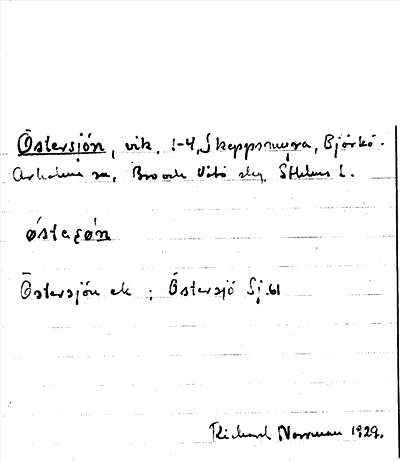 Östersjön, vik. 1-4, Skeppsmyra, Björkö-
Arholma sn, Bro och Vätö skg, Sthlms l.
östașọ́n
Östersjön ek ; Östersjö Sj.61
Richard Norrman 1929.